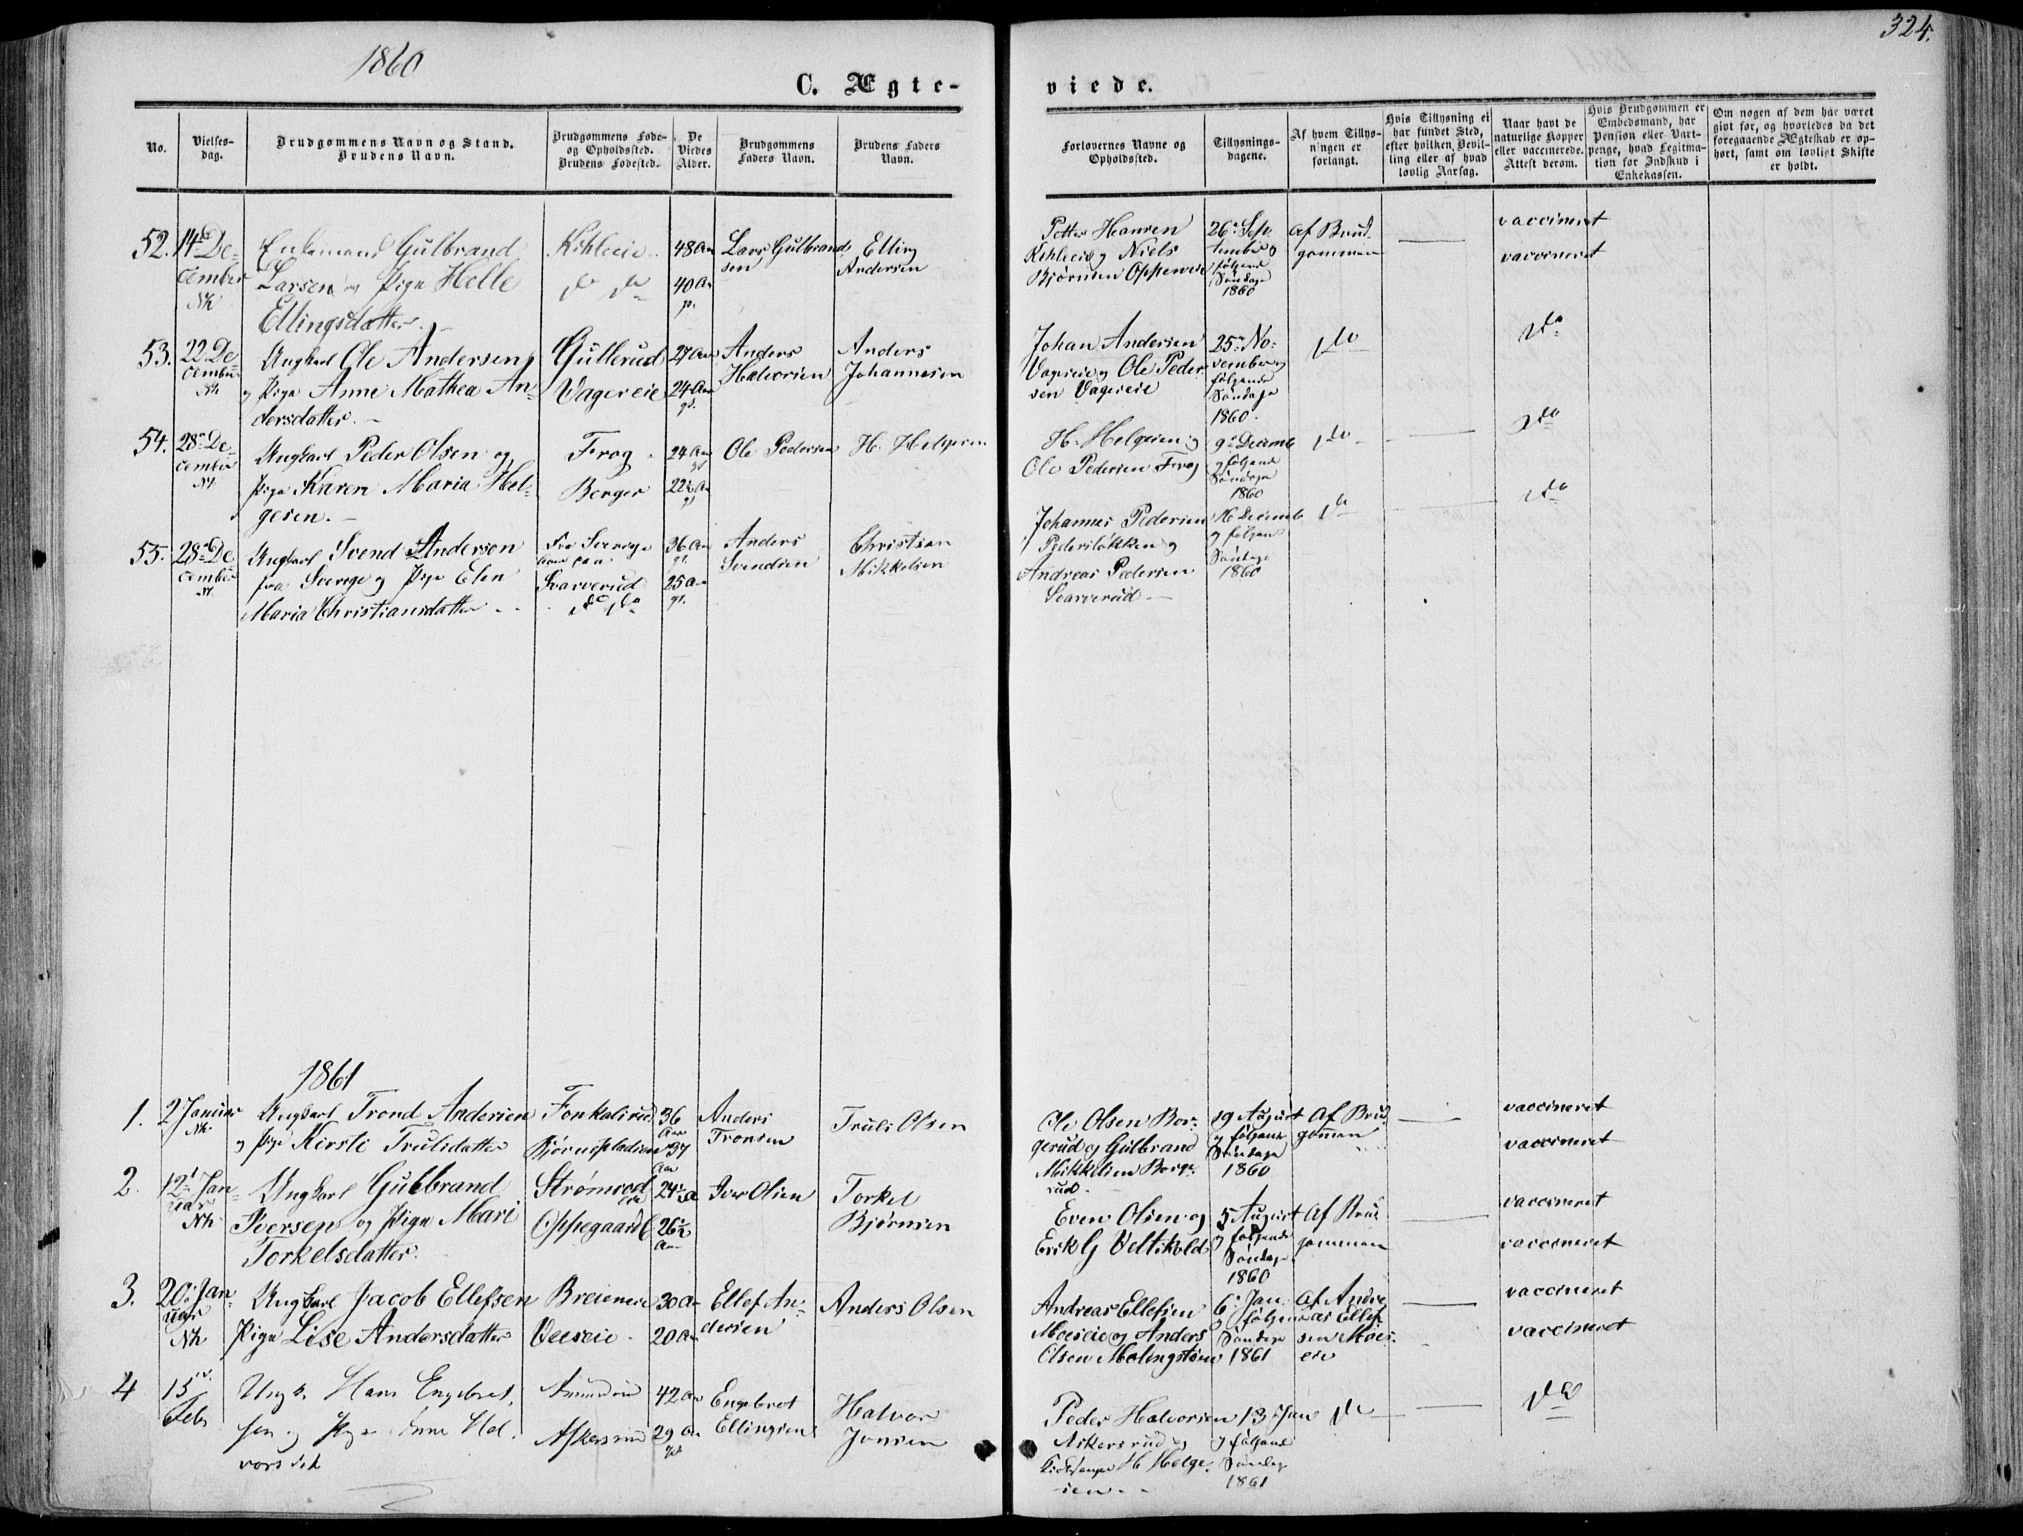 1860
324.
C. Ægte-
viede.
No.
Vielses-
dag.
Brudgommens Navn og Stand.
Brudens Navn.
Brudgommens Føde-
og Opholdssted.
Brudens Fødested.
De
Viedes
Alder.
Brudgommens
Faders Navn.
Brudens Faders
Navn.
Forlovernes Navne og
Opholdssted.
Tillysnings-
dagene.
Af hvem Tillys-
ningen er
forlangt.
Hvis Tillysning ei
har fundet Sted,
efter hvilken Bevil-
ling eller af hvad
lovlig Aarsag.
Naar havt de
naturlige Kopper
eller vaccinerede.
Attest derom.
Hvis Brudgommen er
Embedsmand, har
Pension eller Vart-
penge, hvad Legitima-
tion for Indskud i
Enkekassen.
Om nogen af dem har været
givt før, og hvorledes da det
foregaaende Ægteskab er op-
hørt, samt om lovligt Skifte
er holdt.
52.
14de De-
cember
Nk
Enkemand Gulbrand
Larsen og Pige Helle
Ellingsdatter.
do do
48 Aar
40 Aar
Lars Gulbrand-
sen
Elling
Andersen
Petter Hansen
og Niels
Bjørnsen
26 Sep-
tember og
følgende
Søndage
1860
Af Brud-
gommen
vaccineret
vaccineret
53.
22 De-
cember
Nk
Ungkarl Ole Andersen
og Pige Anne Mathea An-
dersdatter.
Gullerud
Vagereie
27 Aar
24 Aar
Anders
Halvorsen
Anders
Johannesen
Johan Andersen
Vagereie og Ole Peder-
sen Vagereie
25 No-
vember og
følgende
Søndage
1860.
do
do
54.
28 De-
cember
Ungkarl Peder Olsen og
Pige Karen Maria Hel-
gesen.
Frog
Berger
24 Aar
22½ Aar
Ole Pedersen
H. Helgesen
H. Helgesen og
Ole Pedersen Frog
9 Decemb
og følgende
Søndage
1860
do
do
55.
28 De-
cember
Ungkarl Svend Anderson
fra Sverige og Pige Elen
Maria Christiansdatter
Fra Sverige
Svarverud
do do
36 Aar
25 Aar
Anders
Svendsen
Christian
Mikkelsen
Johannes Pedersen
Pedersløkken og
Andreas Pedersen
Svarverud.
16 Decemb
og følgende
Søndage
1860
do
do
1861
1.
2 Januar
Nk
Ungkarl Trond Andersen
og Pige Kirsti Trulsdatter
36
Aar
37
Aar
Anders
Tronsen
Truls Olsen
Ole Olsen Bor-
gerud og Gulbrand
Mikkelsen Borge-
rud.
19 August
og følgende
Søndage
1860
Af Brud-
gommen
vaccineret
vaccineret
2.
12 Jan-
uar
Nk
Ungkarl Gulbrand
Iversen og Pige Mari
Torkelsdatter.
24½ A
26½
Aar
Iver Olsen
Torkel
Bjørnsen
Even Olsen og
Erik G
5 August
og følgende
Søndage
1860
Af Brud-
gommen
vaccineret
vaccineret
3.
20 Jan-
uar
Nk
Ungkarl Jacob Ellefsen
Pige Lise Andersdatter
Breieneie
Veeseie
30 Aar
20 Aar
Ellef An-
dersen
Anders Olsen
Andreas Ellefsen
Moeseie og Anders
Olsen
6 Jan.
og følgende
Søndage
1861
Af Andre-
as Ellef-
sen Moes-
eie
vaccineret
vaccineret
4
15
Feb
Ungk. Hans Engebret-
sen og Pige Anne Hal-
vorsdtr
42 Aar
29 Aar
Engebret
Ellingsen
Halvor
Jonsen
Peder Halvorsen
Askersrud og
Kirkesanger H. Helge-
sen.
13 Jan
og følgende
Søndage
1861
do
do